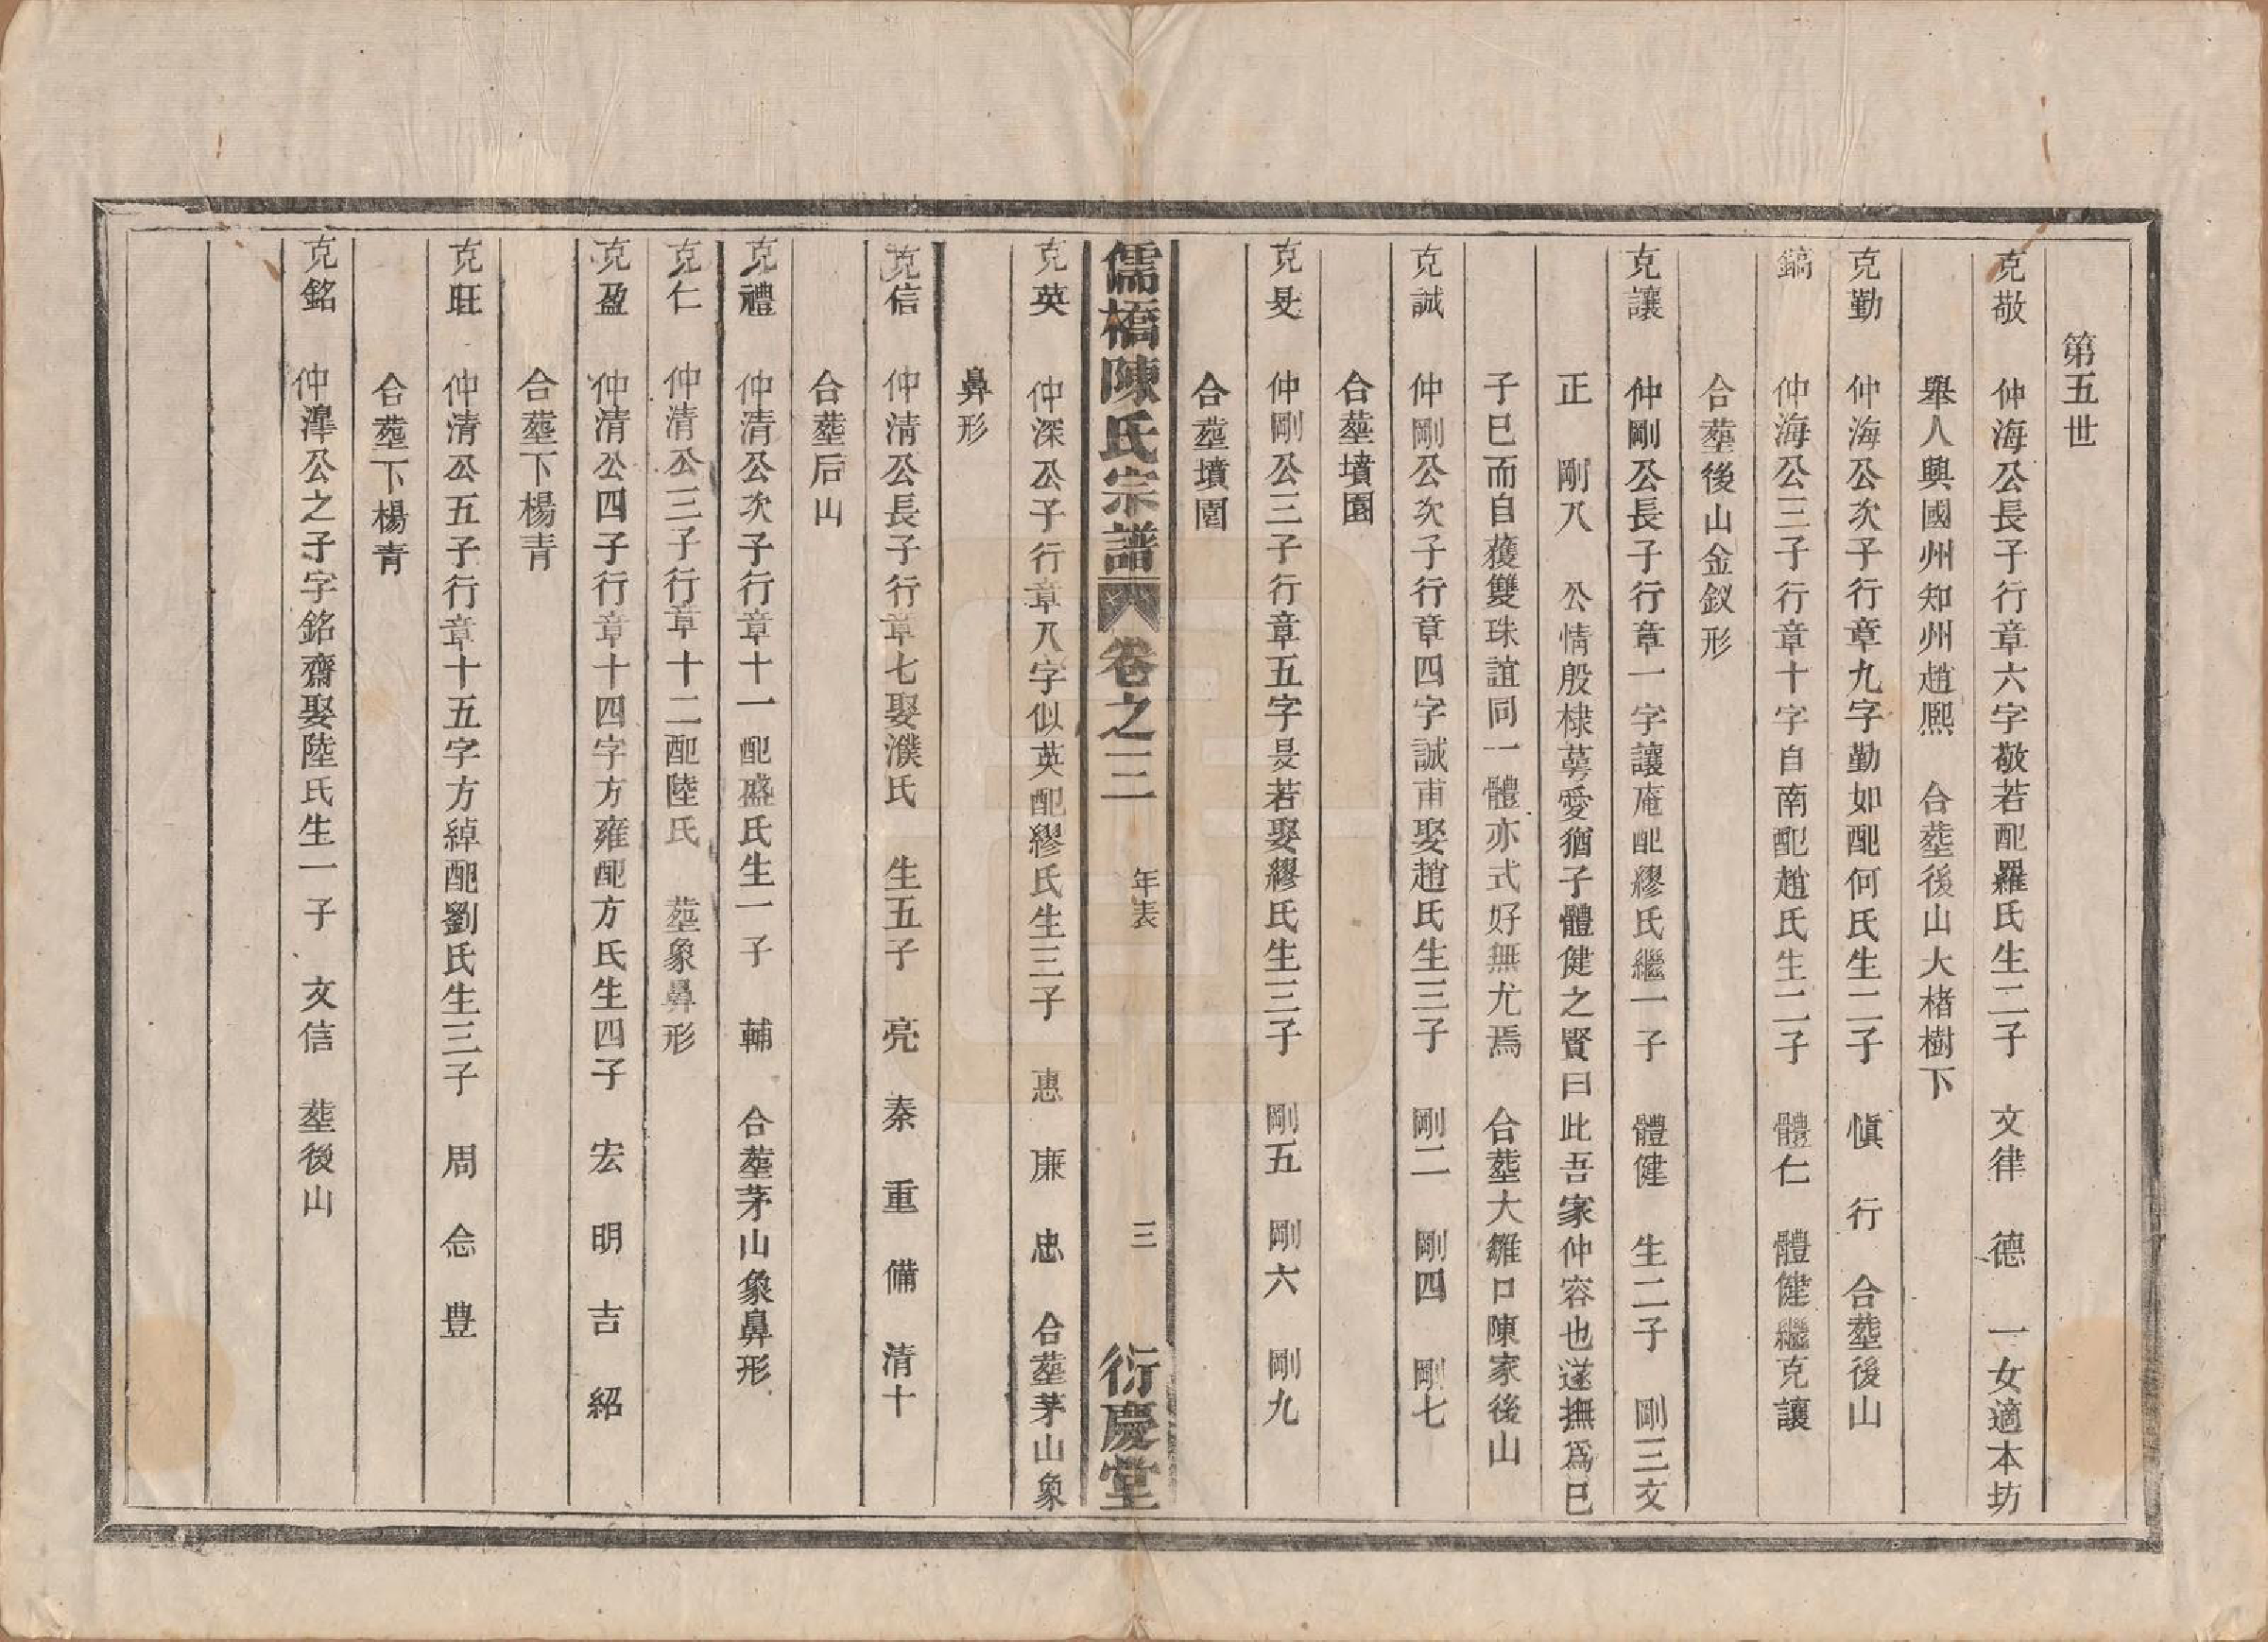 第五世
克敬　仲海公長子行章六字敬若配羅氏生二子　文律　德　一女適本坊
舉人興國州知州趙熈　合塟後山大楮樹下
克勤　仲海公次子行章九字勤如配何氏生二子　愼　行　合塟後山
鎬　仲海公三子行章十字自南配趙氏生二子　體仁　體健繼克讓
合塟後山金釵形
克讓　仲剛公長子行章一字讓庵配繆氏繼一子　體健　生二子　剛三文
正　剛八　公情殷棣萼愛猶子體健之賢曰此吾家仲容也遂撫爲己
子已而自獲雙珠誼同一體亦式好無尤焉　合塟大雛口陳家後山
克誠　仲剛公次子行章四字誠甫娶趙氏生三子　剛二　剛四　剛七
合塟墳園
克旻　仲剛公三子行章五字旻若娶繆氏生三子　剛五　剛六　剛九
合塟墳園
儒橋陳氏宗譜　卷之二　年表　三　衍慶堂
克英　仲深公子行章八字似英配繆氏生三子　惠　廉　忠　合塟茅山象
鼻形
克信　仲清公長子行章七娶濮氏　生五子　亮　秦　重　備　清十
合塟后山
克禮　仲清公次子行章十一配盛氏生一子　輔　合塟茅山象鼻形
克仁　仲清公三子行章十二配陸氏　塟象鼻形
克盈　仲清公四子行章十四字方雍配方氏生四子　宏　明　吉　紹
合塟下楊青
克旺　仲清公五子行章十五字方綽配劉氏生三子　周　念　豊
合塟下楊青
克銘　仲潭公之子字銘齋娶陸氏生一子　文信　塟後山